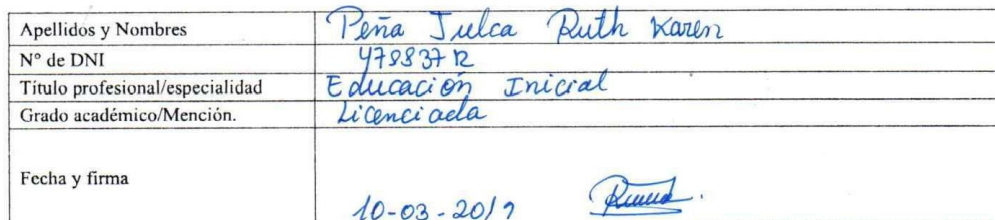 Apellidos y Nombres Peña Julca Ruth Karen
N° de DNI
Título profesional/especialidad Educación Inicial
Grado académico/Mención. Licenciada
Fecha y firma 10-03-2019